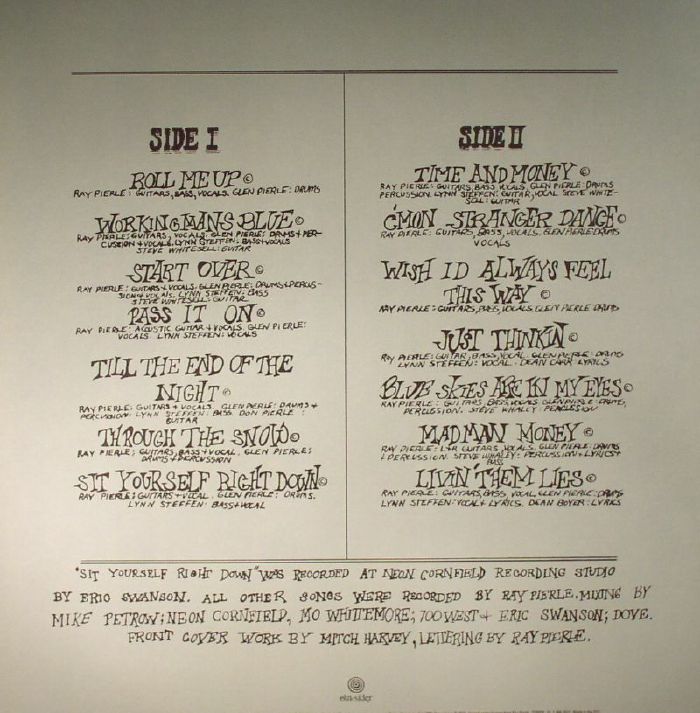 SIDE I
ROLL ME UP ©
RAY PIERLE: GUITARS, BASS, VOCALS. GLEN PIERLE: DRUMS
WORKINGMANS BLUE ©
RAY PIERLE: GUITARS, VOCALS. GLEN PIERLE: DRUMS + PER-
CUSSION + VOCALS. LYNN STEFFEN: BASS + VOCALS
STEVE WHITESELL: GUITAR
START OVER ©
RAY PIERLE: GUITARS + VOCALS. GLEN PIERLE: DRUMS + PERCUS-
SION + VOCALS. LYNN STEFFEN: BASS
STEVE WHITESELL: GUITAR
PASS IT ON ©
RAY PIERLE: ACOUSTIC GUITAR + VOCALS GLEN PIERLE:
VOCALS LYNN STEFFEN: VOCALS
TILL THE END OF THE
NIGHT ©
RAY PIERLE: GUITARS + VOCALS. GLEN PIERLE: DRUMS +
PERCUSSION. LYNN STEFFEN: BASS DON PIERLE:
GUITAR
THROUGH THE SNOW ©
RAY PIERLE: GUITARS, BASS + VOCAL. GLEN PIERLE:
DRUMS + PERCUSSION
SIT YOURSELF RIGHT DOWN ©
RAY PIERLE: GUITARS + VOCAL. GLEN PIERLE: DRUMS.
LYNN STEFFEN: BASS + VOCAL
SIDE II
TIME AND MONEY ©
RAY PIERLE: GUITARS, BASS, VOCALS. GLEN PIERLE: DRUMS
PERCUSSION. LYNN STEFFEN: GUITAR, VOCAL STEVE WHITE-
SELL: GUITAR
C'MON STRANGER DANCE ©
RAY PIERLE: GUITARS, BASS, VOCALS. GLEN PIERLE: DRUMS
VOCALS
WISH ID ALWAYS FEEL
THIS WAY ©
RAY PIERLE: GUITARS, BASS, VOCALS. GLEN PIERLE: DRUMS
JUST THINKIN ©
RAY PIERLE: GUITAR, BASS, VOCAL. GLEN PIERLE: DRUMS
LYNN STEFFEN: VOCAL. DEAN CARR LYRICS
BLUE SKIES ARE IN MY EYES ©
RAY PIERLE: GUITARS, BASS, VOCALS GLEN PIERLE: DRUMS,
PERCUSSION. STEVE WHALLY: PERCUSSION
MADMAN MONEY ©
RAY PIERLE: GUITARS VOCALS GLEN PIERLE: DRUMS
PERCUSSION. STEVE WHALLY: PERCUSSION + LYRICS +
BASS
LIVIN' THEM LIES ©
RAY PIERLE: GUITARS, BASS, VOCAL, GLEN PIERLE: DRUMS
LYNN STEFFEN: VOCAL + LYRICS. DEAN BOYER: LYRICS
"SIT YOURSELF RIGHT DOWN" WAS RECORDED AT NEON CORNFIELD RECORDING STUDIO
BY ERIC SWANSON. ALL OTHER SONGS WERE RECORDED BY RAY PIERLE. MIXING BY
MIKE PETROW; NEON CORNFIELD, MO WHITTEMORE; 700 WEST + ERIC SWANSON; DOVE.
FRONT COVER WORK BY MITCH HARVEY, LETTERING BY RAY PIERLE.